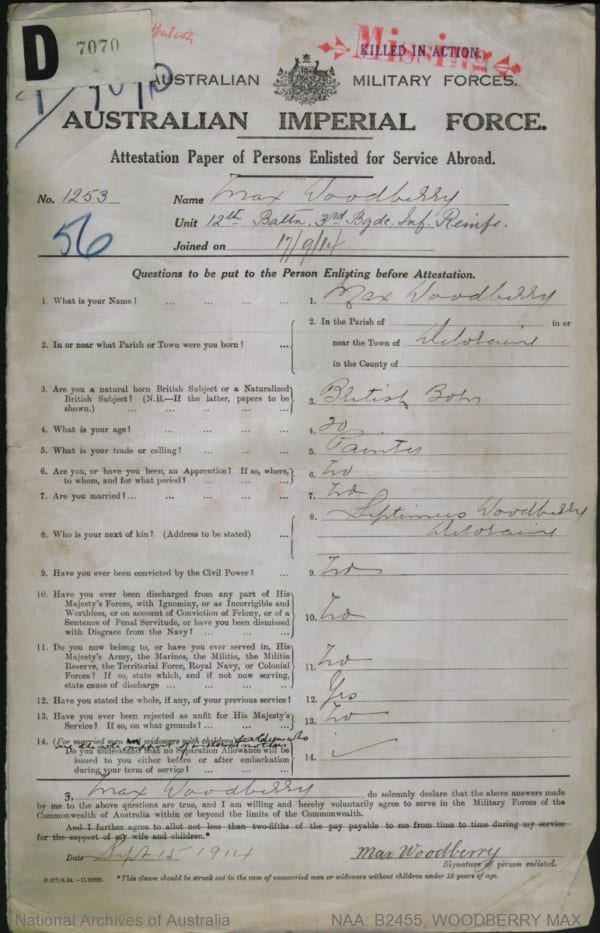 D
7070
KILLED IN ACTION.
Missing
AUSTRALIAN MILITARY FORCES.
AUSTRALIAN IMPERIAL FORCE.
Attestation Paper of Persons Enlisted for Service Abroad.
No. 1253 Name Max Woodberry
56
Unit 12th Battn. 3rd Bgde. Inf. Reinfs.
Joined on 17/9/14
Questions to be put to the Person Enlisting before Attestation.
1. What is your Name? ... ... ... ... 1. Max Woodberry
2. In or near what Parish or Town were you born? ... 2. In the Parish of in or
near the Town of Deloraine
in the County of
3. Are you a natural born British Subject or a Naturalized
British Subject? (N.B.—If the latter, papers to be
shown.) ... ... ... ... ... 3. British Born
4. What is your age? ... ... ... ... 4. 20
5. What is your trade or calling? ... ... ... 5. Painter
6. Are you, or have you been, an Apprentice? If so, where,
to whom, and for what period? ... ... ... 6. No
7. Are you married? ... ... ... ... ... 7. No
8. Who is your next of kin? (Address to be stated) ... 8. Septimus Woodberry
Deloraine
9. Have you ever been convicted by the Civil Power? ... 9. No
10. Have you ever been discharged from any part of His
Majesty's Forces, with Ignominy, or as Incorrigible and
Worthless, or on account of Conviction of Felony, or of a
Sentence of Penal Servitude, or have you been dismissed
with Disgrace from the Navy? ... ... ... 10. No
11. Do you now belong to, or have you ever served in, His
Majesty's Army, the Marines, the Militia, the Militia
Reserve, the Territorial Force, Royal Navy, or Colonial
Forces? If so, state which, and if not now serving,
state cause of discharge ... ... ... ... 11. No
12. Have you stated the whole, if any, of your previous service? 12. Yes
13. Have you ever been rejected as unfit for His Majesty's
Service? If so, on what grounds? ... ... ... 13. No
14. (For married men and widowers with children soldiers who
are the sole support of widowed mothers
Do you understand that no Separation Allowance will be
issued to you either before or after embarkation
during your term of service? ... ... ... 14.
I, Max Woodberry do solemnly declare that the above answers made
by me to the above questions are true, and I am willing and hereby voluntarily agree to serve in the Military Forces of the
Commonwealth of Australia within or beyond the limits of the Commonwealth.
And I further agree to allot not less than two-fifths of the pay payable to me from time to time during my service
for the support of my wife and children.*
Date Sept 15 1914 Max Woodberry
Signature of person enlisted.
*This clause should be struck out in the case of unmarried men or widowers without children under 18 years of age.
National Archives of Australia NAA: B2455, WOODBERRY MAX